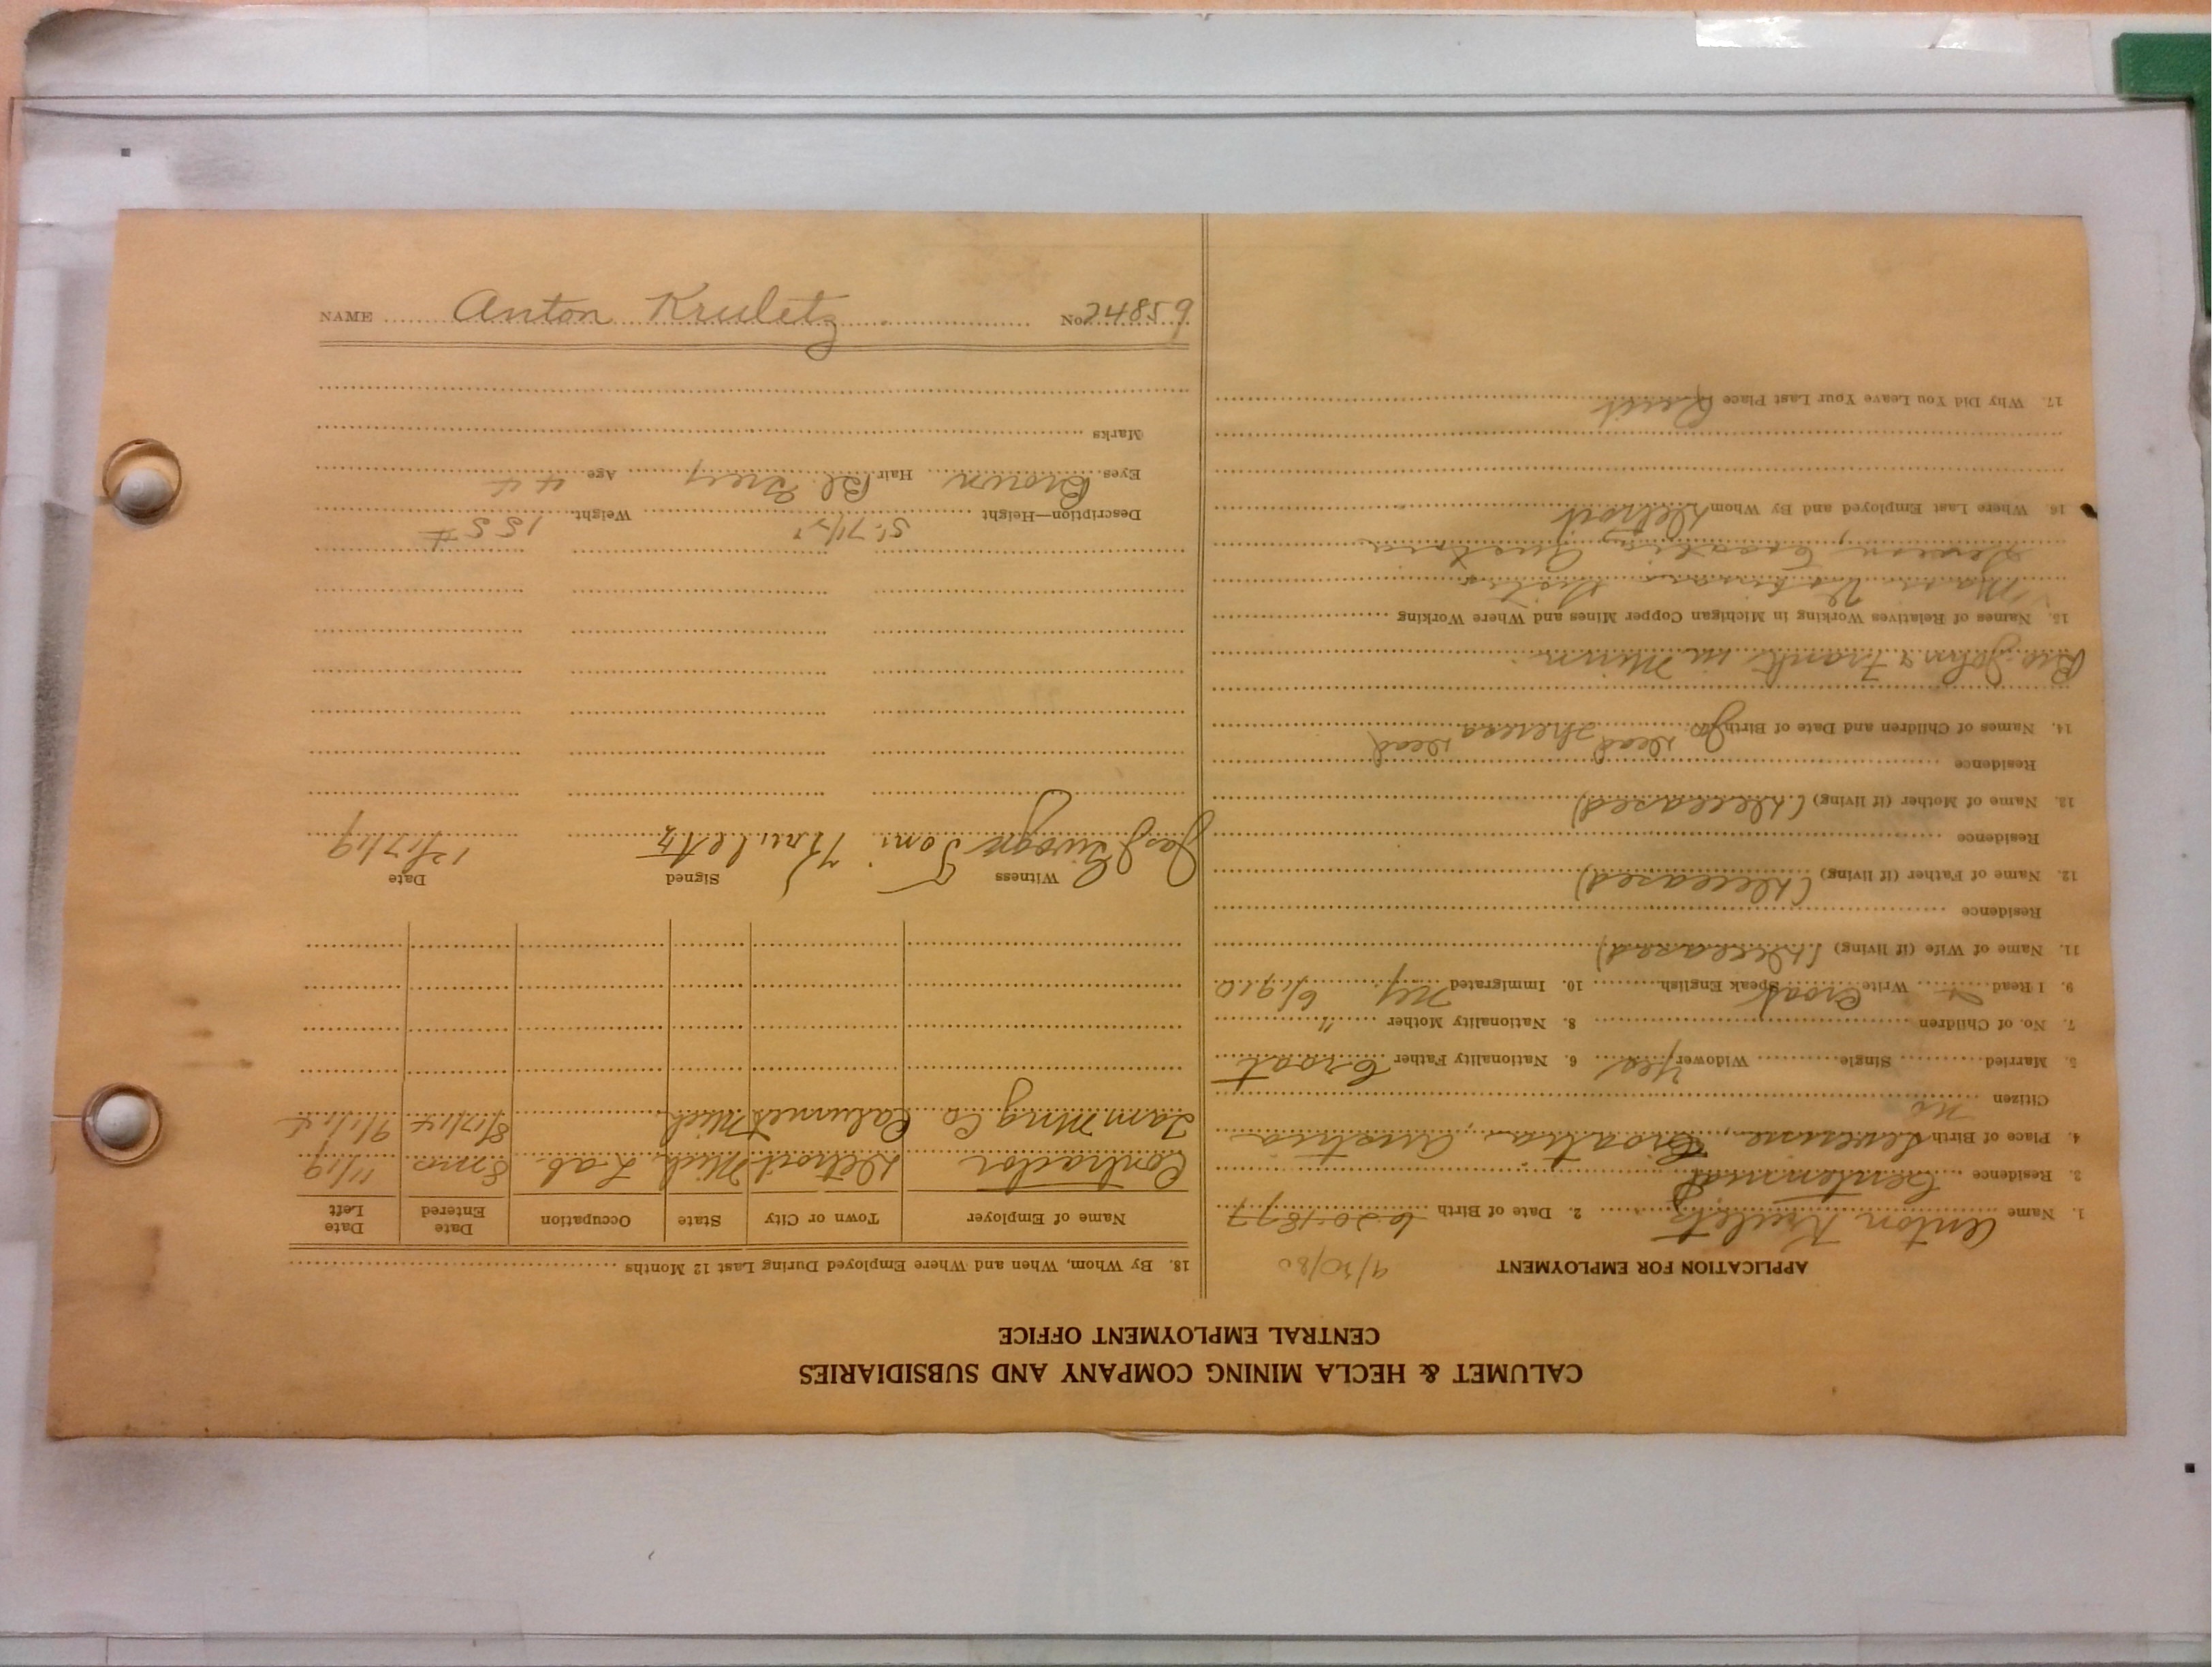 CALUMET & HECLA MINING COMPANY AND SUBSIDIARIES
CENTRAL EMPLOYMENT OFFICE
APPLICATION FOR EMPLOYMENT 9/30/80
1. Name Anton Kruletz 2. Date of Birth 6-20-1877
3. Residence Centennial
4. Place of Birth Severine, Croatia, Austria
Citizen no
5. Married Single Widower yes 6. Nationality Father Croat
7. No. of Children 8. Nationality Mother "
9. I Read Write Croat Speak English 10. Immigrated NY. 6/1910
11. Name of Wife (if living) (Deceased)
Residence
12. Name of Father (if living) (Deceased)
Residence
13. Name of Mother (if living) (Deceased)
Residence
14. Names of Children and Date of Birth Jo. dead Theresa dead
Bro. John & Frank in Minn.
15. Names of Relatives Working in Michigan Copper Mines and Where Working
Croatia, Austria
16. Where Last Employed and By Whom Detroit
17. Why Did You Leave Your Last Place Quit
18. By Whom, When and Where Employed During Last 12 Months
Name of Employer Town or City State Occupation Date Entered Date Left
Contractor Detroit Mich Lab. 8 mos 11/19
Tam Mng Co Calumet Mich 8/17/14 9/1/14
Witness Signed Date
Toni Kruletz 12/17/19
Description—Height 5' 7 1/2" Weight 155 #
Eyes Brown Hair Bl. Grey Age 44
Marks
NAME Anton Kruletz No. 24859